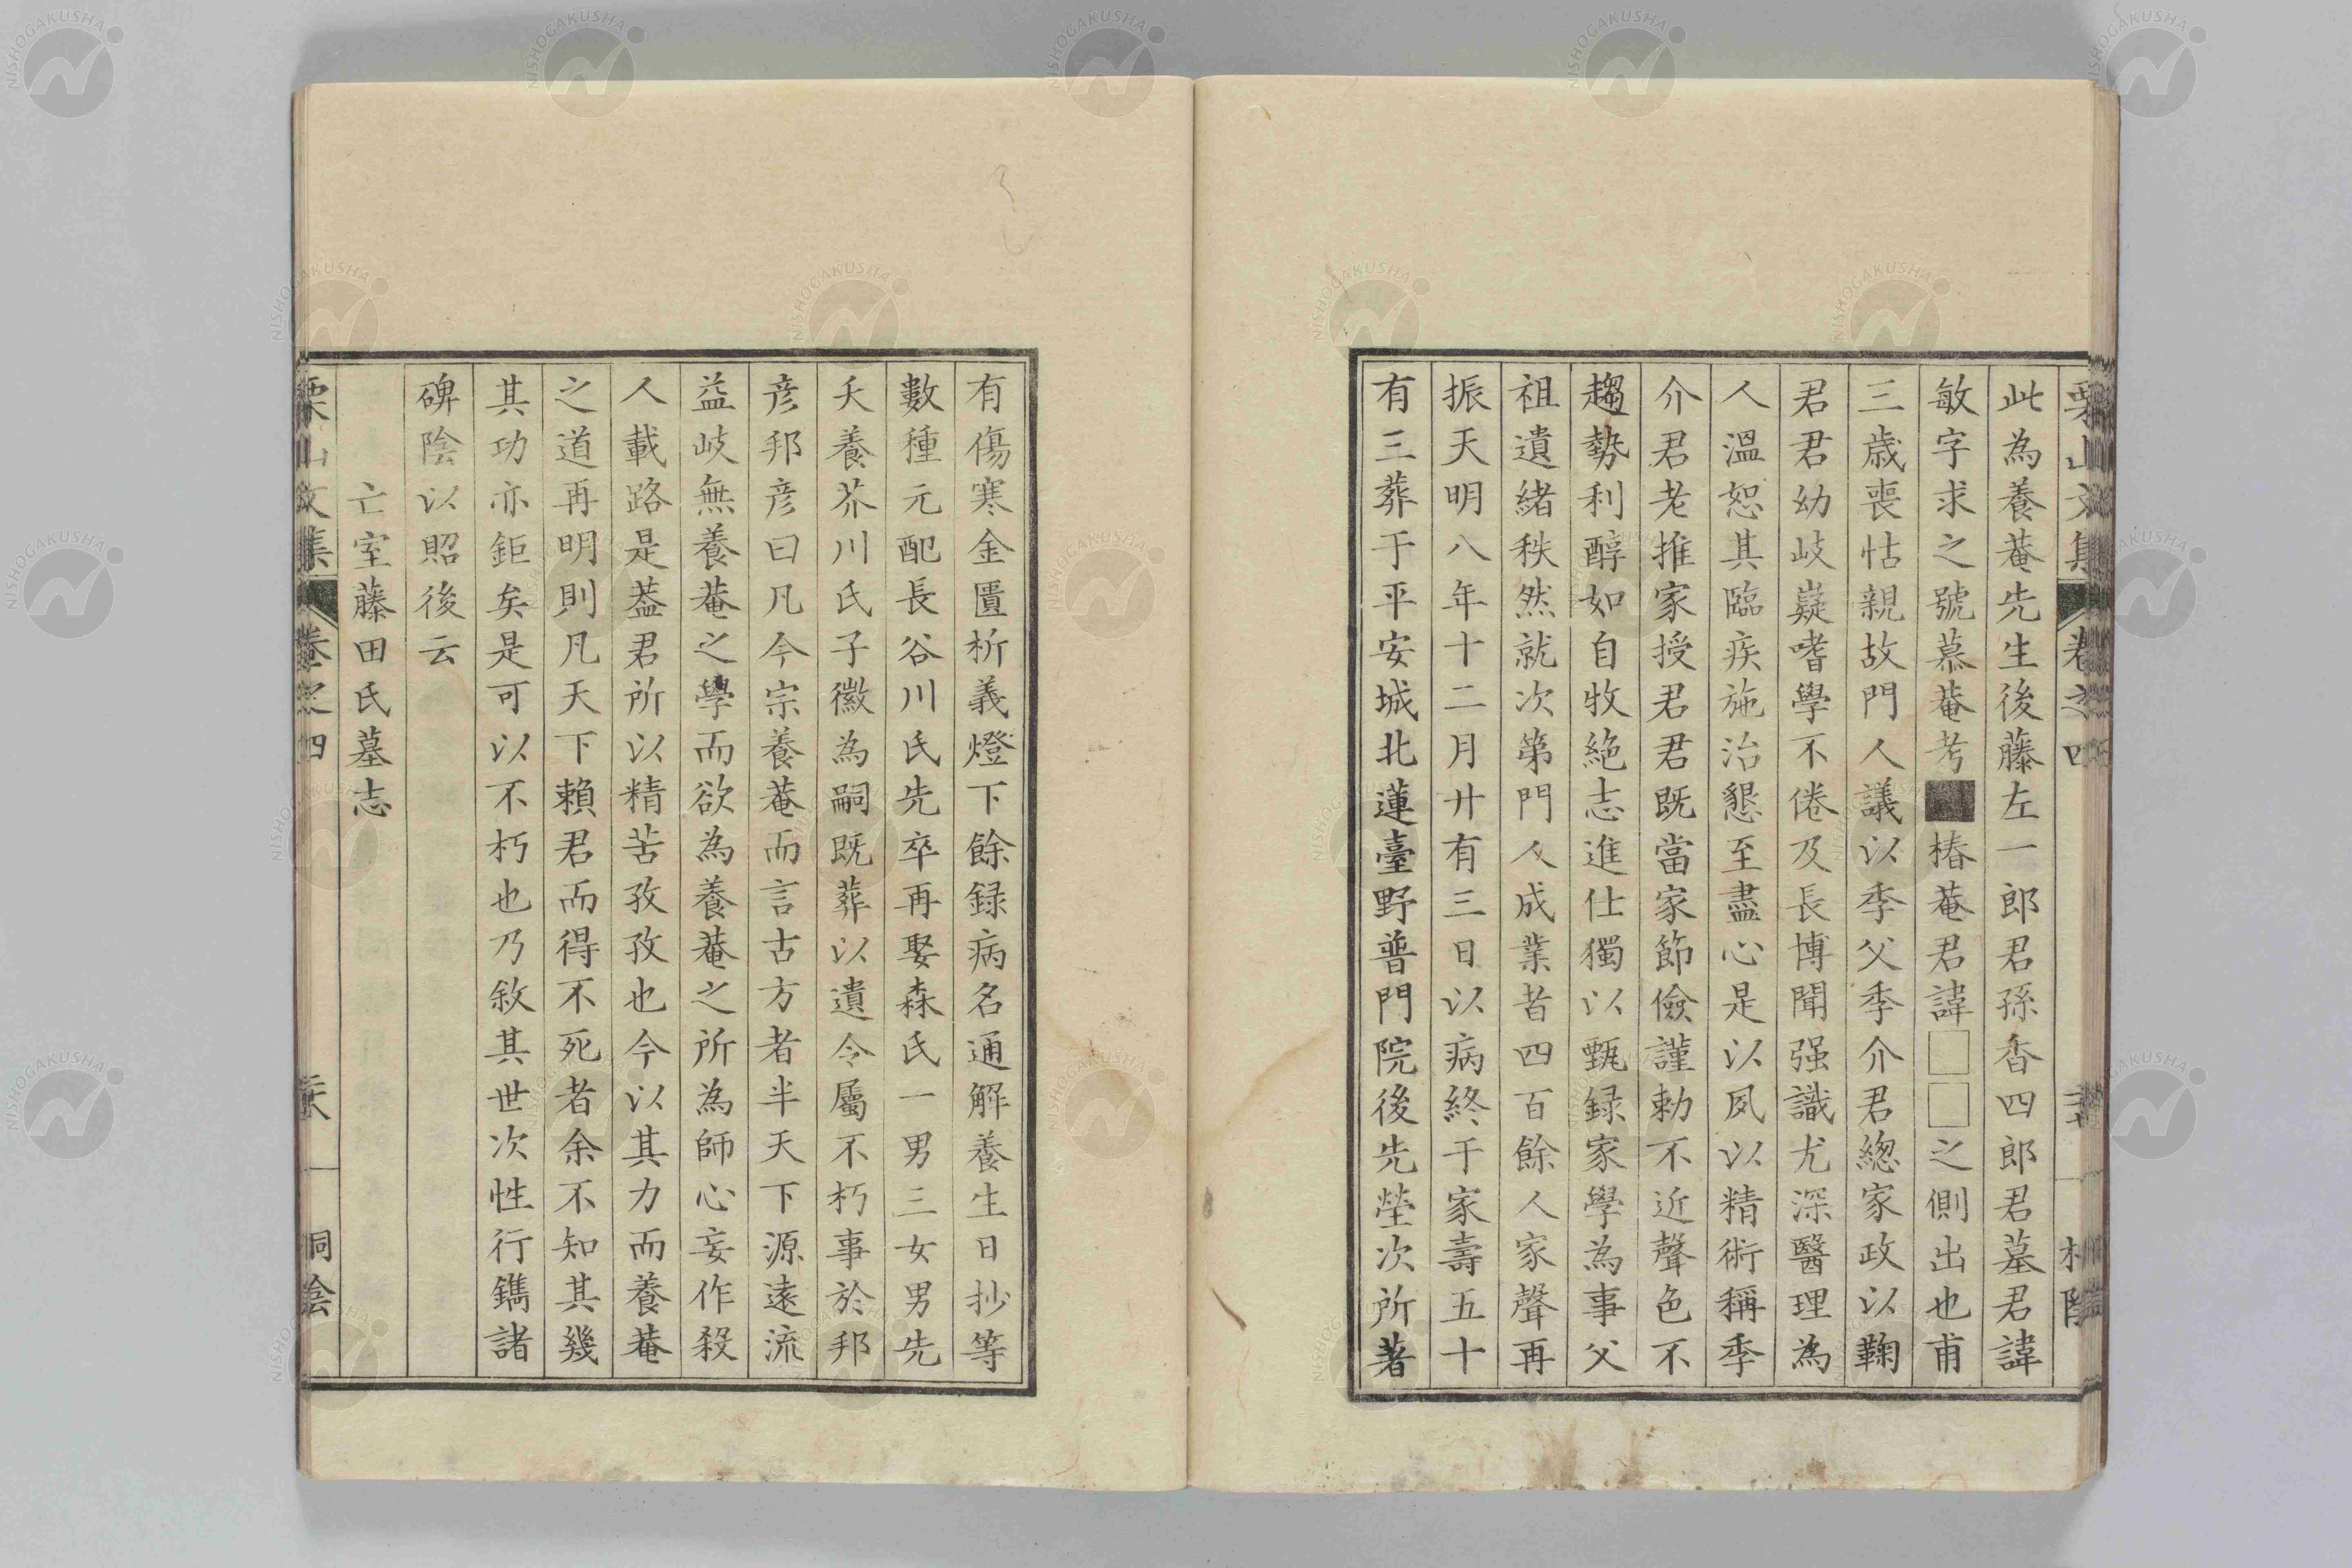 栗山文集 卷之四
此為養菴先生後藤左一郎君孫香四郎君墓君諱
敏字求之號慕菴考■椿菴君諱□□之側出也甫
三歳喪怙親故門人議以季父季介君緫家政以鞠
君君幼岐嶷嗜學不倦及長博聞强識尤深醫理為
人溫恕其臨疾施治懇至盡心是以夙以精術稱季
介君老推家授君君既當家節儉謹勅不近聲色不
趨勢利醇如自牧絶志進仕獨以甄録家學為事父
祖遺緒秩然就次第門人成業者四百餘人家聲再
振天明八年十二月廿有三日以病終于家壽五十
有三葬于平安城北蓮臺野普門院後先塋次所著
有傷寒金匱析義燈下餘録病名通解養生日抄等
數種元配長谷川氏先卒再娶森氏一男三女男先
夭養芥川氏子徽為嗣既葬以遺令屬不朽事於邦
彦邦彦曰凡今宗養菴而言古方者半天下源遠流
益岐無養菴之學而欲為養菴之所為師心妄作殺
人載路是葢君所以精苦孜孜也今以其力而養菴
之道再明則凡天下賴君而得不死者余不知其幾
其功亦鉅矣是可以不朽也乃敘其世次性行鐫諸
碑陰以照後云
亡室藤田氏墓志
栗山文集 卷之四 桐陰